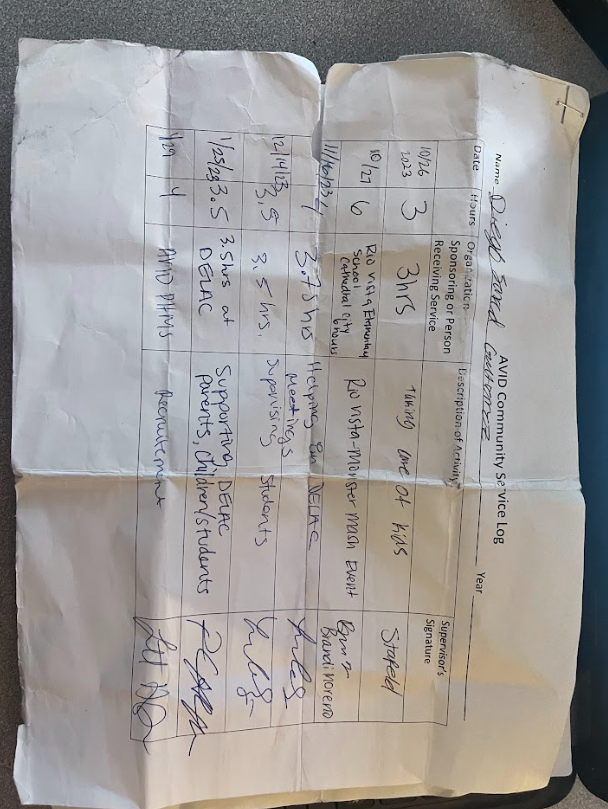 AVID Community Service Log
Name Diego Year
Date Hours Organization Sponsoring or Person Receiving Service Description of Activity Supervisor's Signature
10/26 2023 3 3hrs taking care of kids
10/27 6 Rio Vista Elementary School Cathedral City 6 hours Rio Vista-Monster Mash Event Brandi Moreno
11/16/23 3.75 hrs Helping DELAC Meetings
12/14/23 3.5 3.5 hrs. Supervising Students
1/25/23 3.5 3.5hrs at DELAC Supporting DELAC parents, Children/students
1/29 4 AVID Recruitement